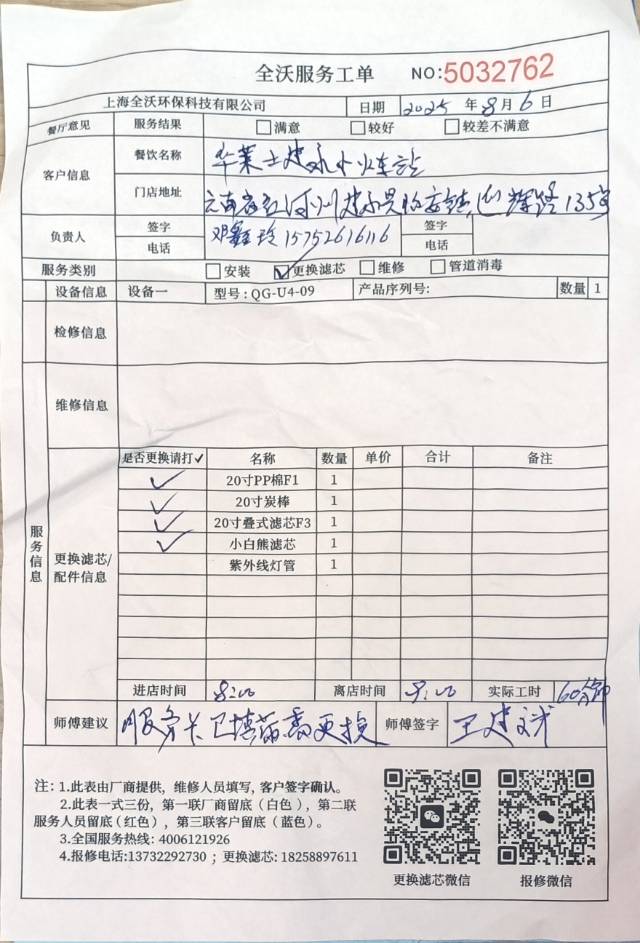 全沃服务工单 NO:5032762
上海全沃环保科技有限公司 日期 2025 年 8 月 6 日
餐厅意见 服务结果 满意 较好 较差不满意
客户信息 餐饮名称 华莱士建水火车站
门店地址 云南省红河州建水县临安镇迎辉路135号
负责人 签字 邓 玲 签字
电话 15752616116 电话
服务类别 安装 ✓更换滤芯 维修 管道消毒
设备信息 设备一 型号：QG-U4-09 产品序列号： 数量 1
检修信息
维修信息
服务信息
更换滤芯/配件信息
是否更换请打✓ 名称 数量 单价 合计 备注
✓ 20寸PP棉F1 1
✓ 20寸炭棒 1
✓ 20寸叠式滤芯F3 1
✓ 小白熊滤芯 1
紫外线灯管 1
进店时间 8:00 离店时间 9:00 实际工时 60分钟
师傅建议 服务卡已填 需更换 师傅签字 王建
注：1.此表由厂商提供，维修人员填写，客户签字确认。
2.此表一式三份，第一联厂商留底（白色），第二联
服务人员留底（红色），第三联客户留底（蓝色）。
3.全国服务热线：4006121926
4.报修电话:13732292730；更换滤芯: 18258897611
更换滤芯微信 报修微信